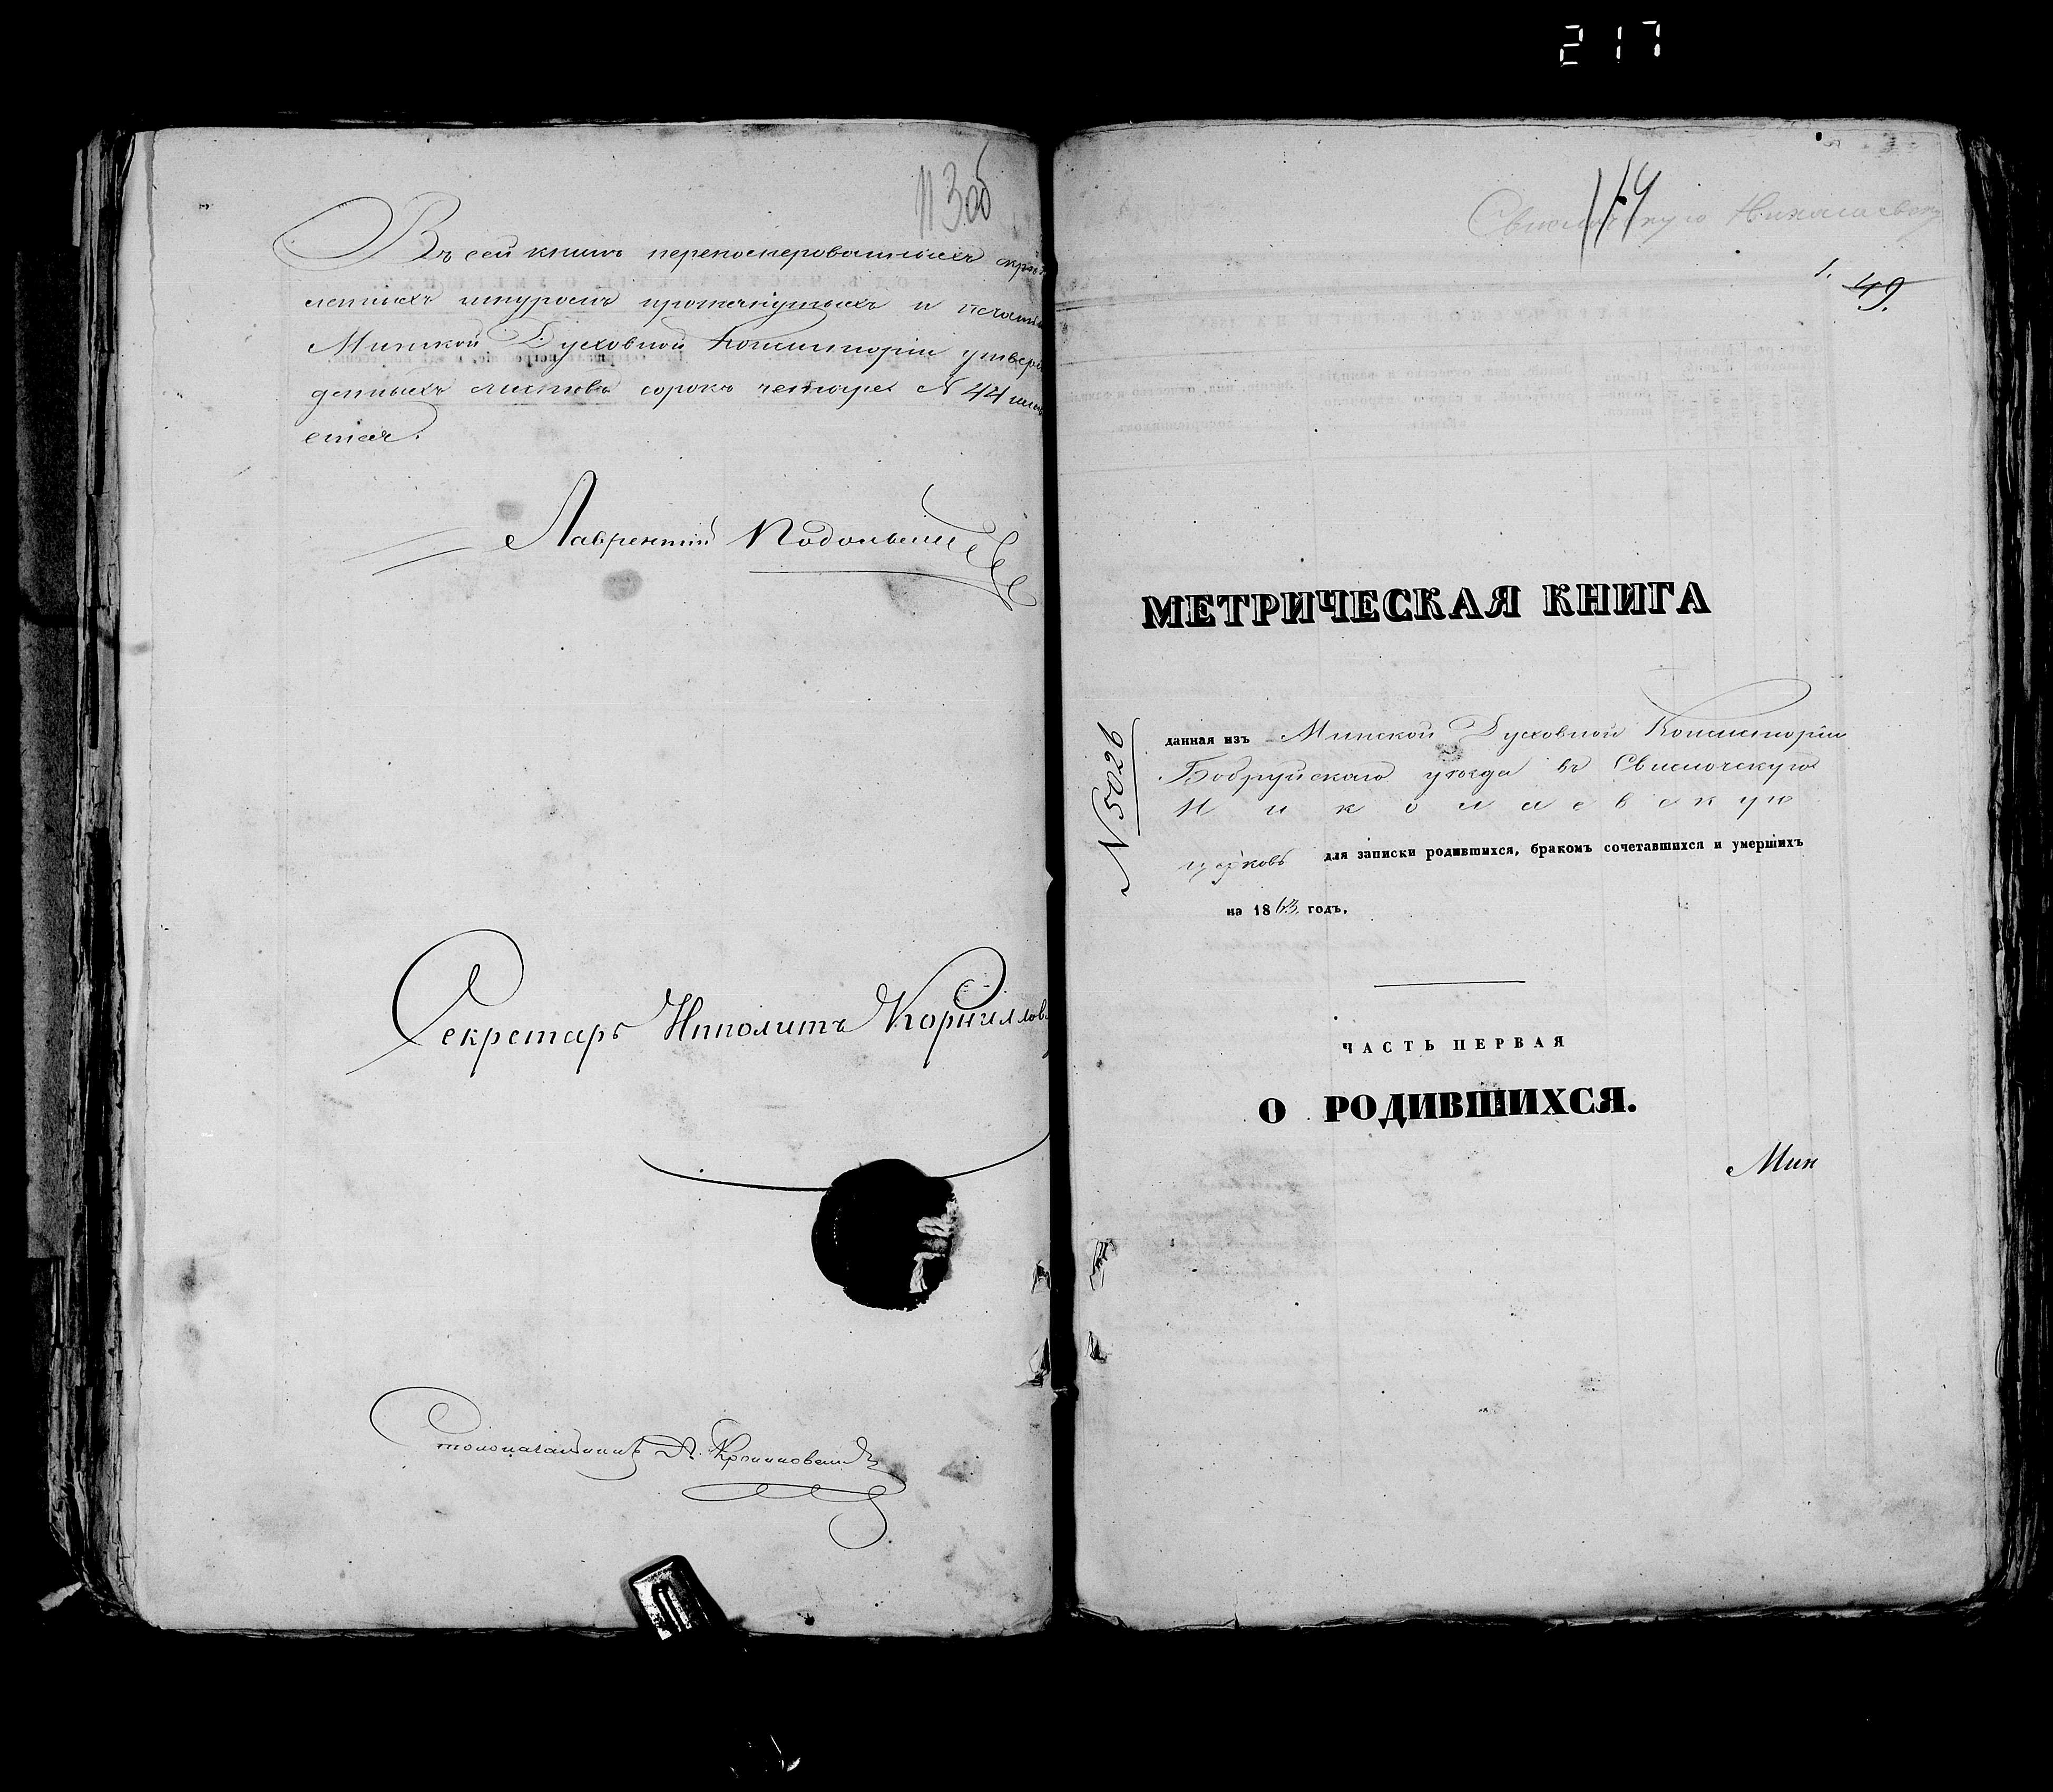 217
113об
Въ сей книгѣ перенумерованныхъ скрѣп
ленныхъ шнуромъ протянутыхъ и печатью
Минской Духовной Консисторіи утверж
денныхъ листовъ сорокъ четыре N 44 име
ется.
Лаврентій
Секретарь Ипполитъ Корнилов
Столоначальникъ
114
Свислочскую Николаевскую
1.
49.
МЕТРИЧЕСКАЯ КНИГА
N 5026
данная изъ Минской Духовной Консисторіи
Бобруйскаго уѣзда въ Свислочскую
Николаевскую
церковь для записки родившихся, бракомъ сочетавшихся и умершихъ
на 1863 годъ.
ЧАСТЬ ПЕРВАЯ
О РОДИВШИХСЯ.
Мин